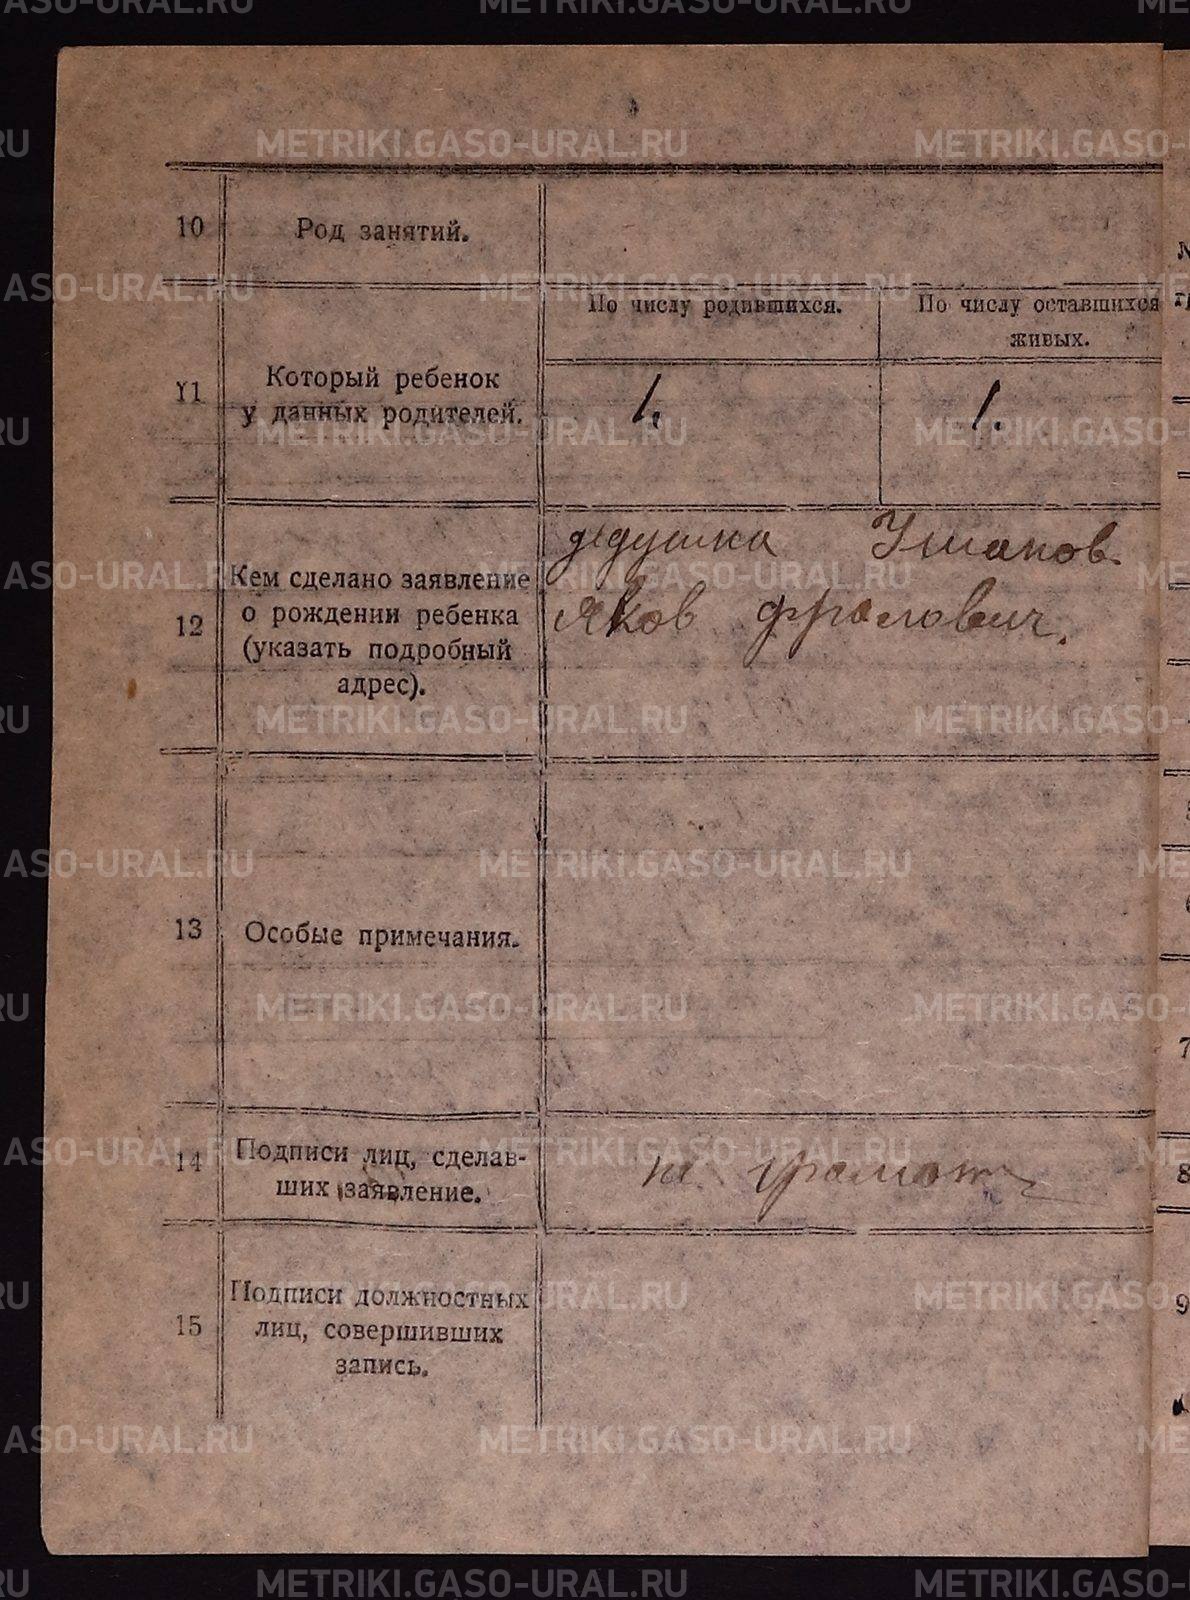 10 Род занятий.
По числу родившихся. По числу оставшихся
живых.
11 Который ребенок
у данных родителей.
1. 1.
12 Кем сделано заявление
о рождении ребенка
(указать подробный
адрес).
дедушка Ушаков
Яков Фролович.
13 Особые примечания.
14 Подписи лиц, сделав-
ших заявление.
не грамот
15 Подписи должностных
лиц, совершивших
запись.
7
8
9
METRIKI.GASO-URAL.RU